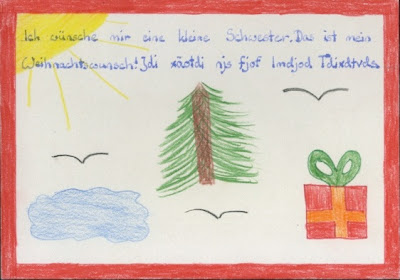 Ich wünsche mir eine kleine Schwester. Das ist mein
Weihnachtswunsch! Jdi xöotdi njs fjof lmdjod Tdixdtvds